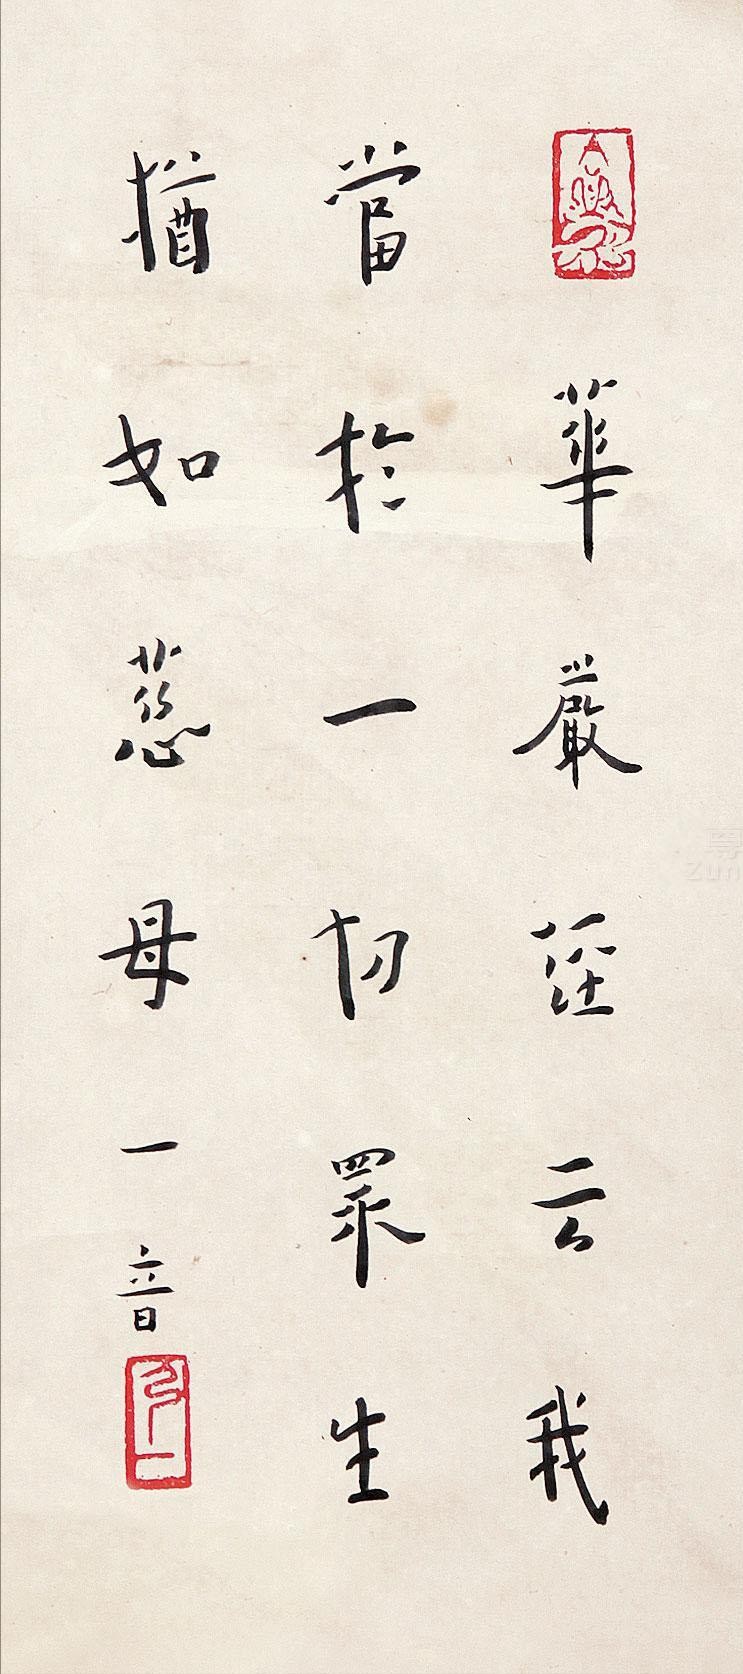 華嚴經云我
當於一切眾生
猶如慈母一音
弘一
尊
zun